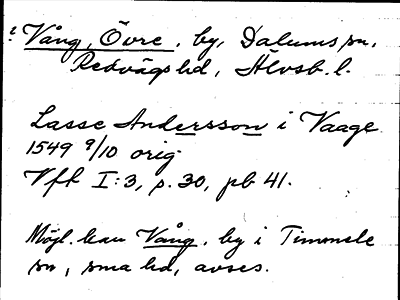 ? Vång, Övre, by, Dalums sn,
Redvägs hd, Älvsb. l.
Lasse Andersson i Vaage
1549 9/10 orig.
Vfh I:3, p. 30, pb 41.
Möjl. kan Vång, by i Timmele
sn, sma hd, avses.